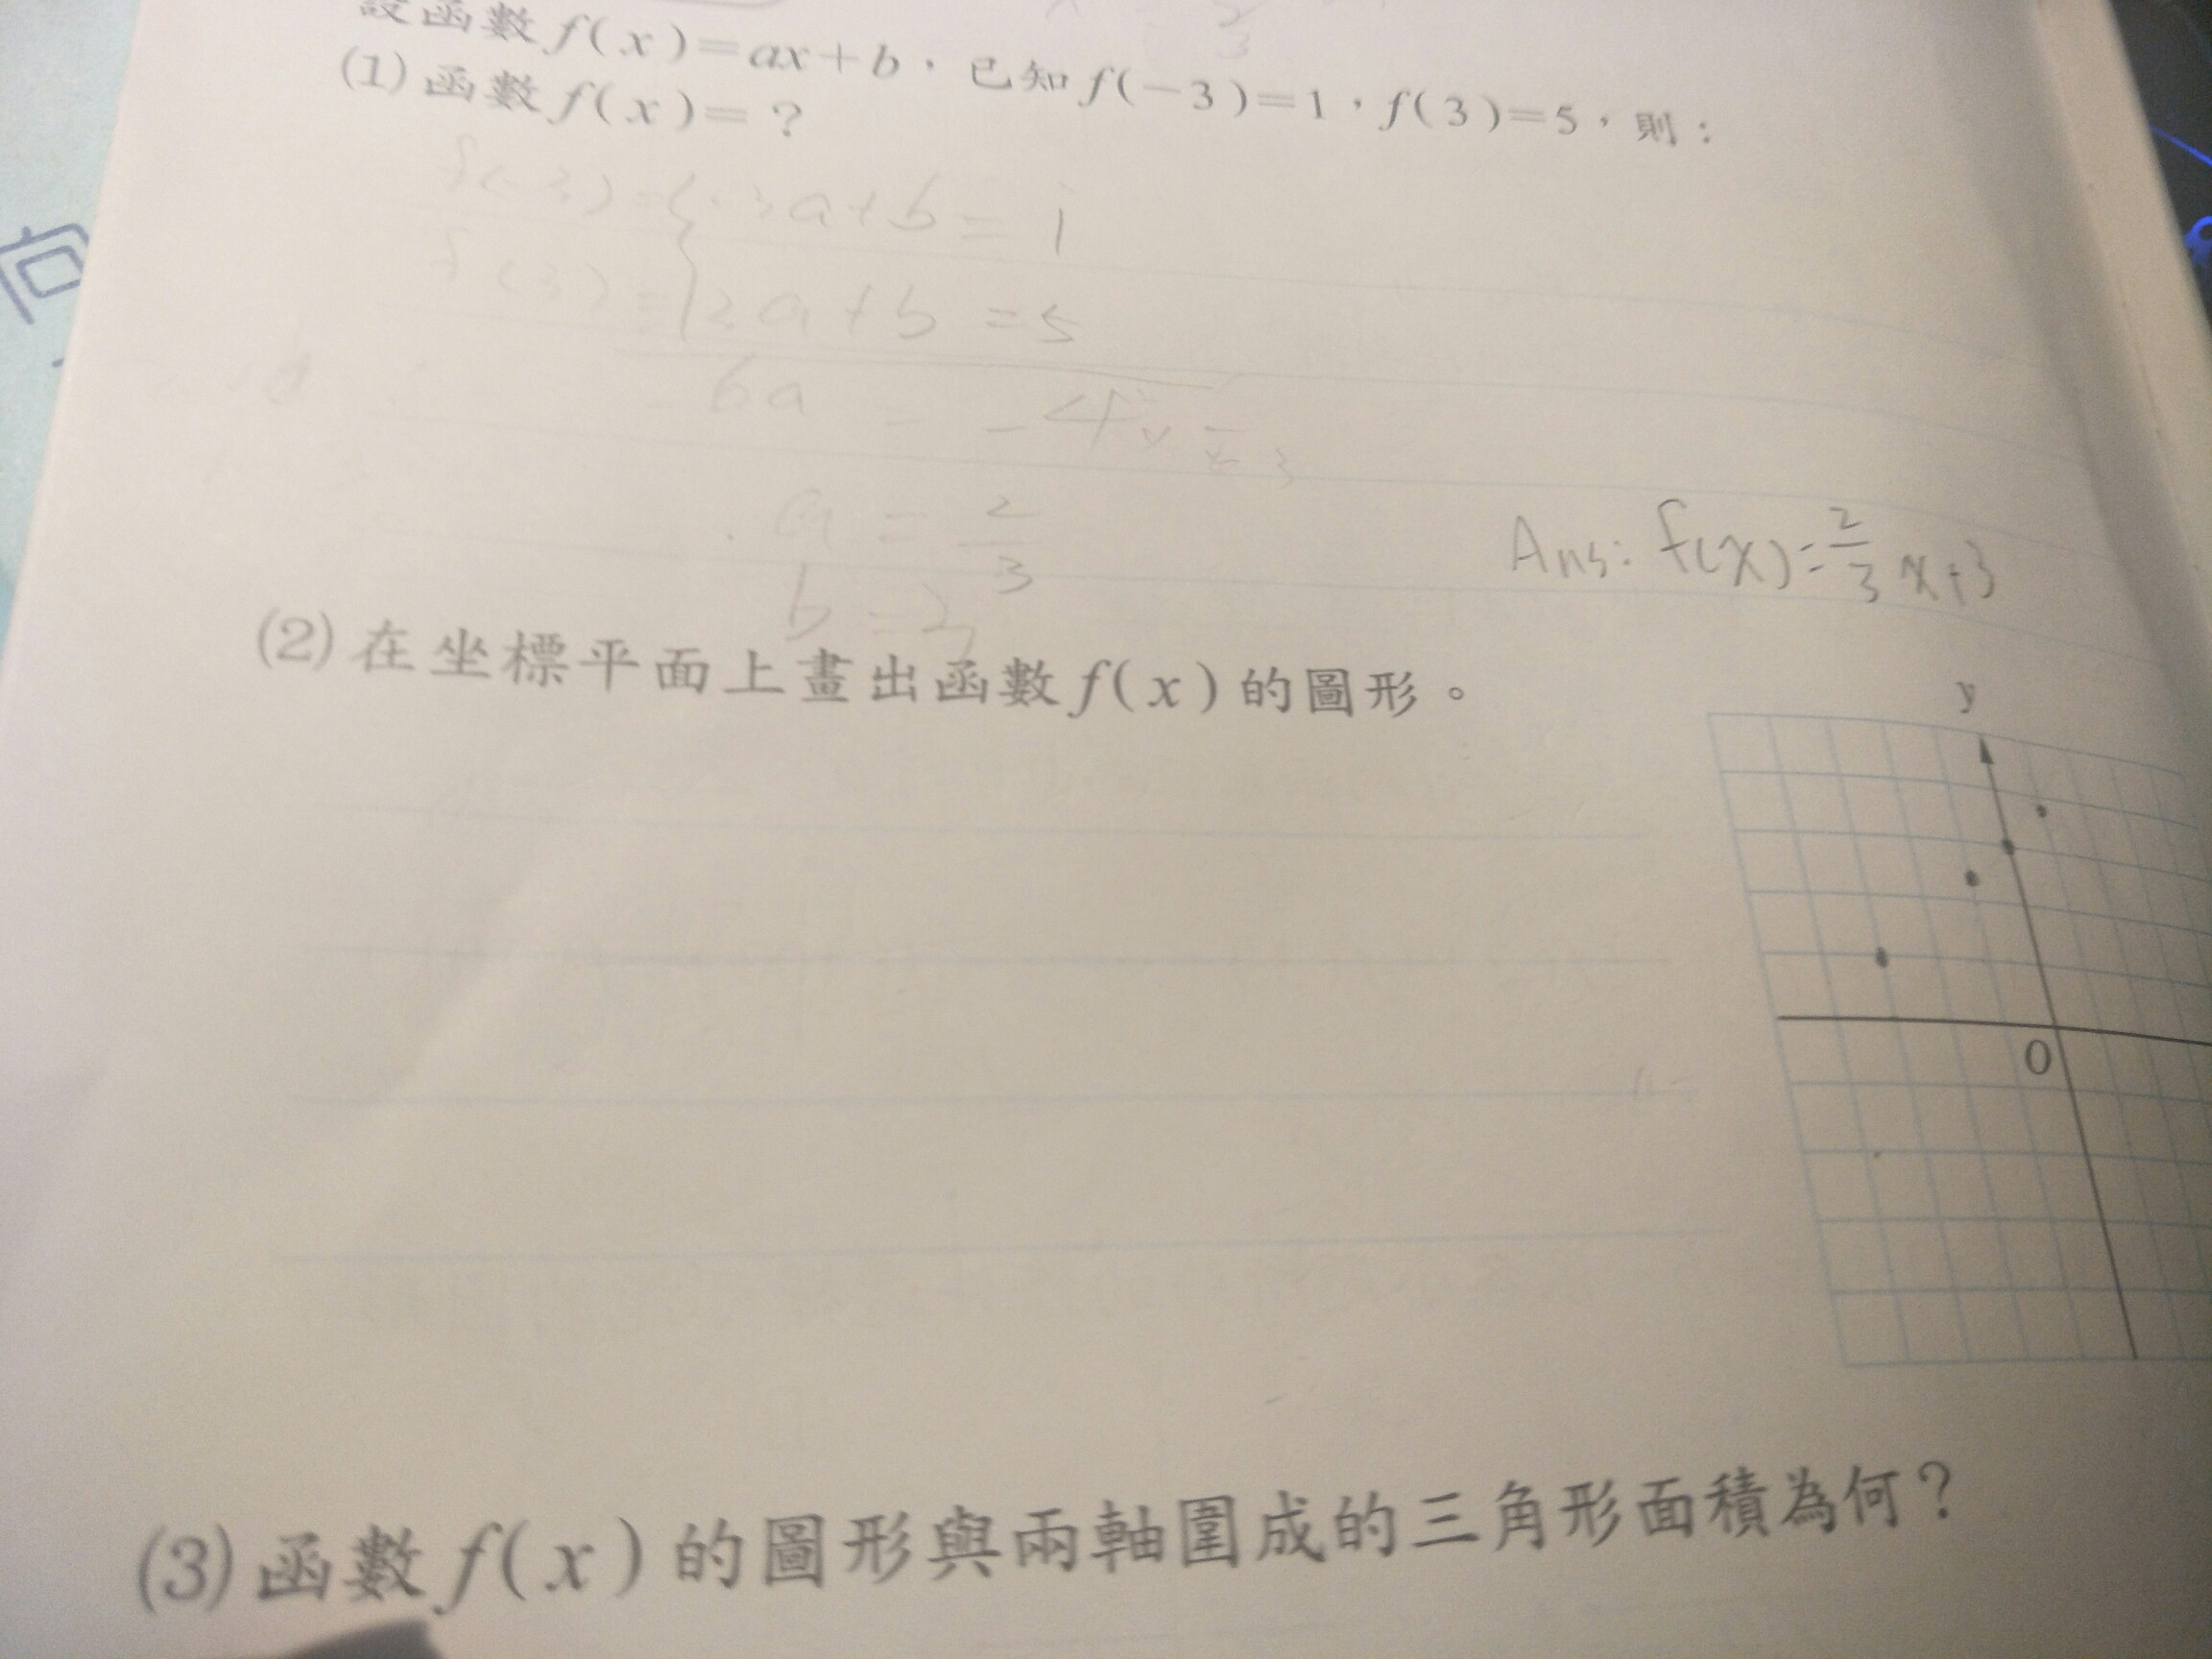 設函數f(x)=ax+b，已知f(-3)=1，f(3)=5，則：
(1)函數f(x)=？
f(-3)={-3a+b=1
f(3)={3a+b=5
-6a=-4
a=2/3
b=3
Ans: f(x)=2/3x+3
(2)在坐標平面上畫出函數f(x)的圖形。
y
O
(3)函數f(x)的圖形與兩軸圍成的三角形面積為何？
向